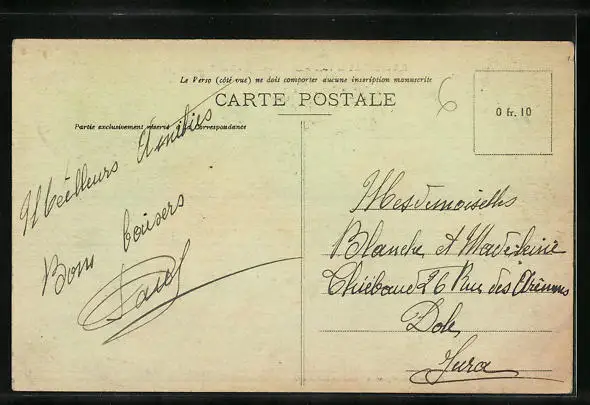 Le Verso (côté vue) ne doit comporter aucune inscription manuscrite
CARTE POSTALE
Partie exclusivement réservée à la Correspondance
6
0 fr. 10
Meilleurs Amitiés
Bons baisers
Paul
Mesdemoiselles
Blanche et Madeleine
Thiébaud 26 Rue des Arènes
Dole
Jura